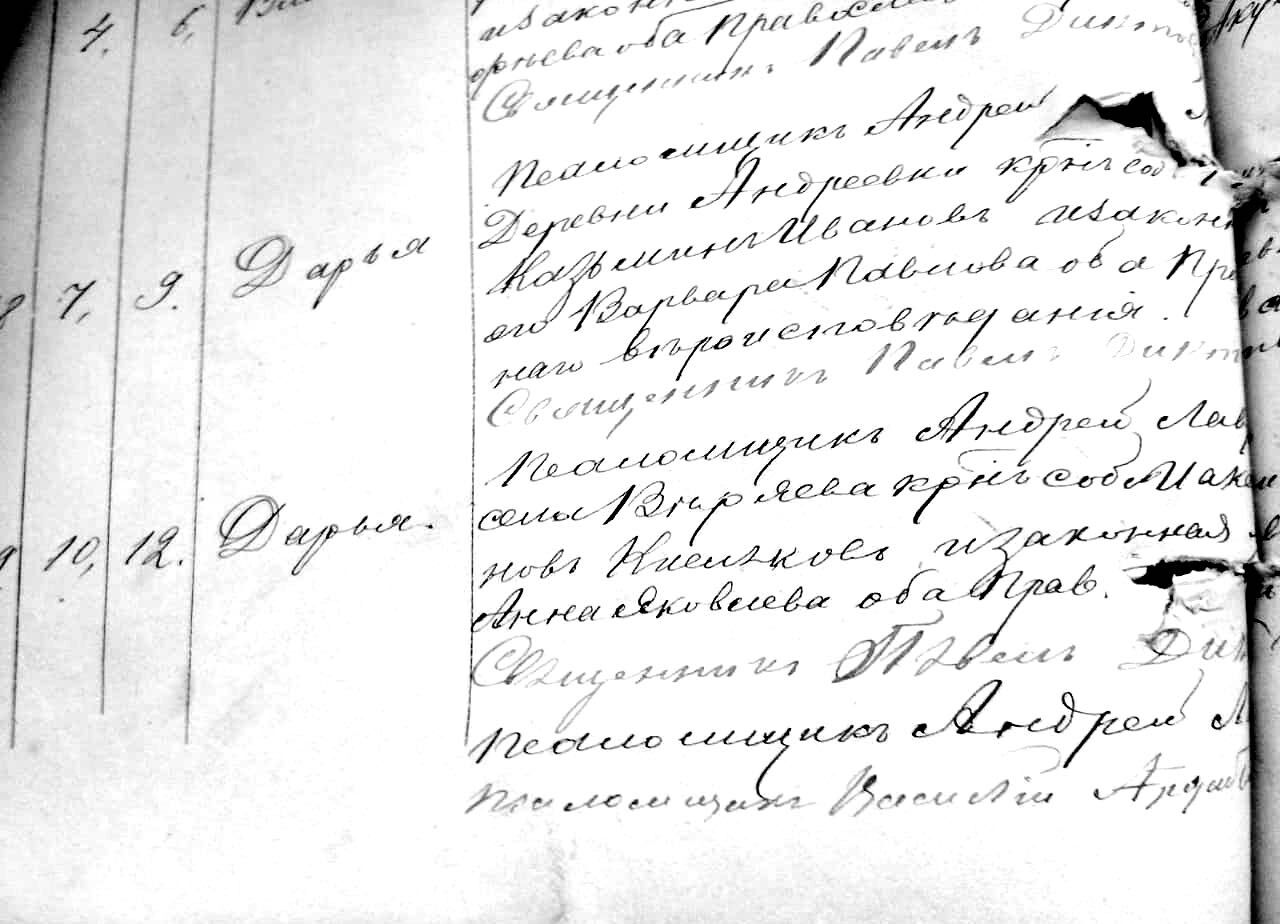 4, 6,
изакон
фьева оба Правосла
Священникъ Павелъ Дикто
Псаломщикъ Андрей
Деревни Андреевки кр̄нъ соб
7, 9. Дарья
Казьминъ Ивановъ изаконн
его Варвара Павлова оба Пра
наго вѣроисповѣданія.
Священникъ Павелъ Дикто
Псаломщикъ Андрей Лав
10, 12. Дарья.
села Выряева кр̄нъ соб
новъ Киселковъ изаконная
Анна Яковлева оба Прав.
Священникъ Павелъ Дик
Псаломщикъ Андрей Л
Псаломщикъ Василій